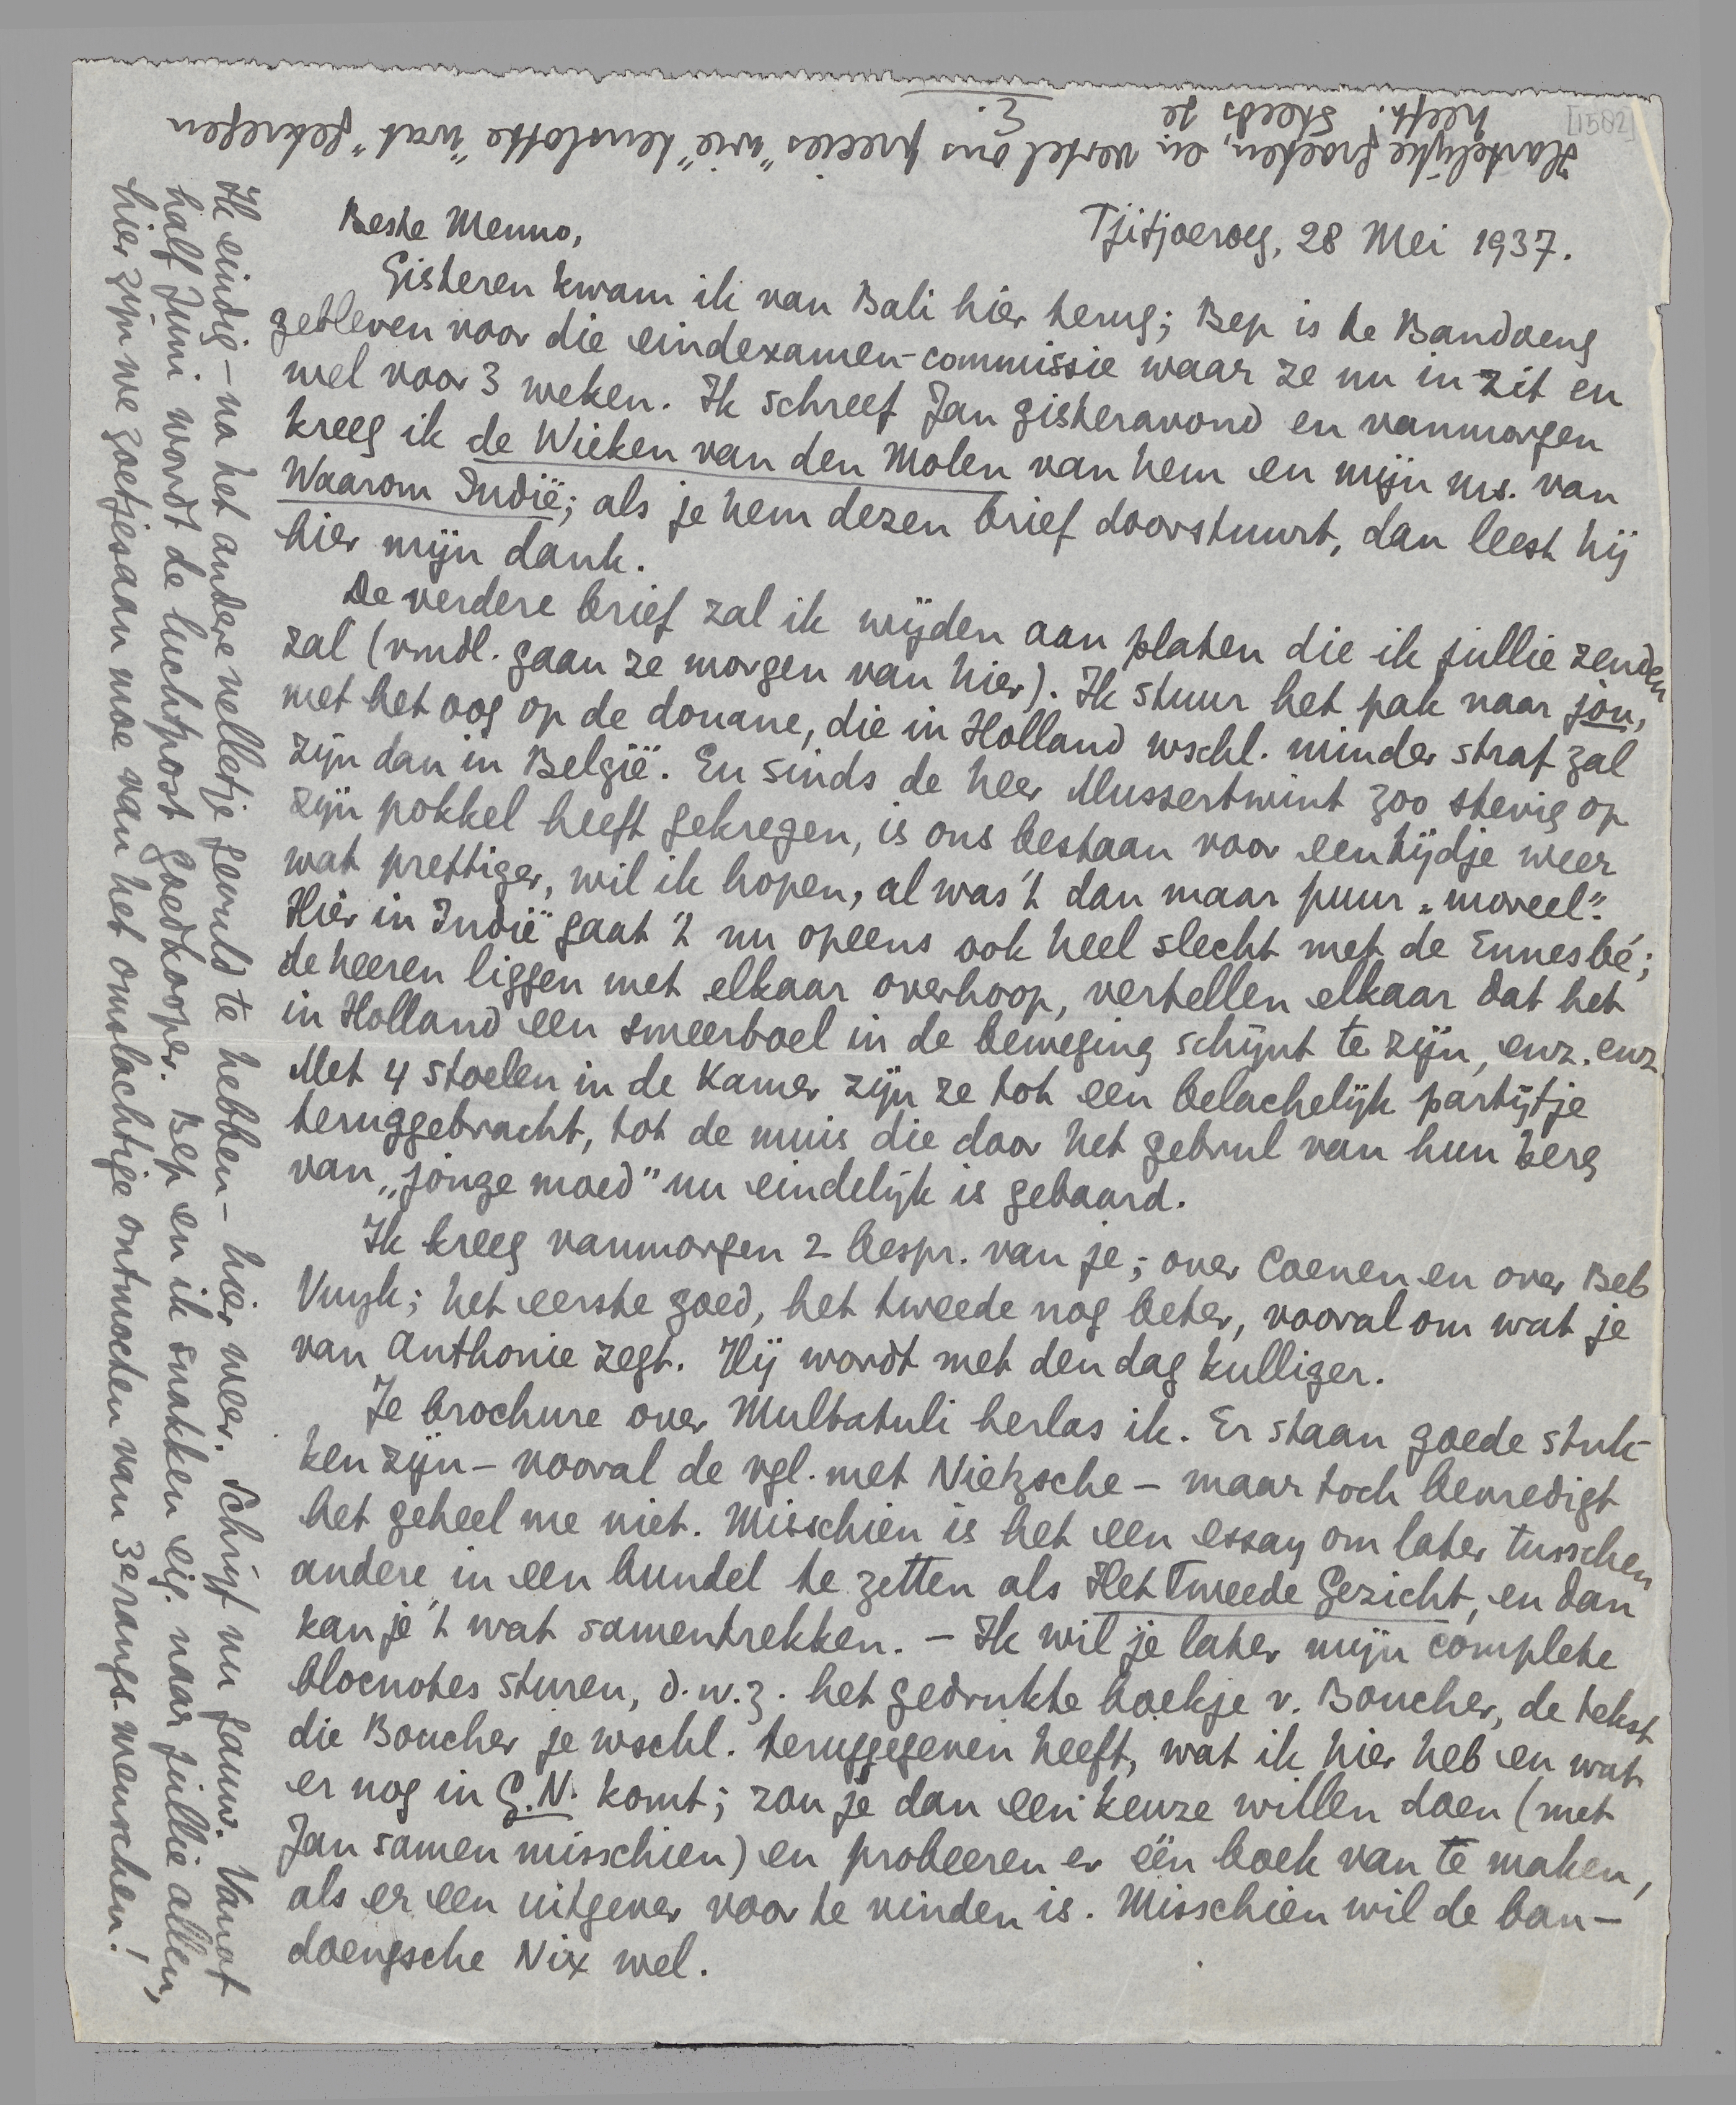 [1502]
Tjitjoeroeg, 28 Mei 1937.
Beste Menno,
Gisteren kwam ik van Bali hier terug; Bep is te Bandoeng
gebleven voor die eindexamen-commissie waar ze nu in zit en
wel voor 3 weken. Ik schreef Jan gisteravond en vanmorgen
kreeg ik de Wieken van den Molen van hem en mijn ms. van
Waarom Indië; als je hem dezen brief doorstuurt, dan leest hij
hier mijn dank.
De verdere brief zal ik wijden aan platen die ik jullie zenden
zal (vmdl. gaan ze morgen van hier). Ik stuur het pak naar jou,
met het oog op de douane, die in Holland wschl. minder straf zal
zijn dan in België. En sinds de heer Mussertwint zoo stevig op
zijn pokkel heeft gekregen, is ons bestaan voor een tijdje weer
wat prettiger, wil ik hopen, al was 't dan maar puur „moreel".
Hier in Indië gaat 't nu opeens ook heel slecht met de Ennesbé;
de heeren liggen met elkaar overhoop, vertellen elkaar dat het
in Holland een smeerboel in de beweging schijnt te zijn, enz. enz.
Met 4 stoelen in de Kamer zijn ze tot een belachelijk partijtje
teruggebracht, tot de muis die door het gebrul van hun berg
van „jonge moed" nu eindelijk is gebaard.
Ik kreeg vanmorgen 2 bespr. van je; over Coenen en over Beb
Vuyk; het eerste goed, het tweede nog beter, vooral om wat je
van Anthonie zegt. Hij wordt met den dag kulliger.
Je brochure over Multatuli herlas ik. Er staan goede stuk-
ken zijn - vooral de vgl. met Nietzsche - maar toch bevredigt
het geheel me niet. Misschien is het een essay om later tusschen
andere in een bundel te zetten als Het Tweede Gezicht, en dan
kan je 't wat samentrekken. - Ik wil je later mijn complete
blocnotes sturen, d.w.z. het gedrukte boekje v. Boucher, de tekst
die Boucher je wschl. teruggegeven heeft, wat ik hier heb en wat
er nog in G.N. komt; zou je dan een keuze willen doen (met
Jan samen misschien) en probeeren er één boek van te maken,
als er een uitgever voor te vinden is. Misschien wil de ban-
doengsche Nix wel.
Ik eindig - na het andere velletje gevuld te hebben - hier weer. Schrijf nu gauw. Vanaf
half Juni wordt de luchtpost goedkooper. Bep en ik snakken eig. naar jullie allen,
hier zijn we zoetjesaan moe van het omslachtige ontmoeten van 3e rangs-menschen!
Hartelijke groeten, en vertel ons precies "wie" tenslotte "wat" gekregen
heeft. Steeds je
E.